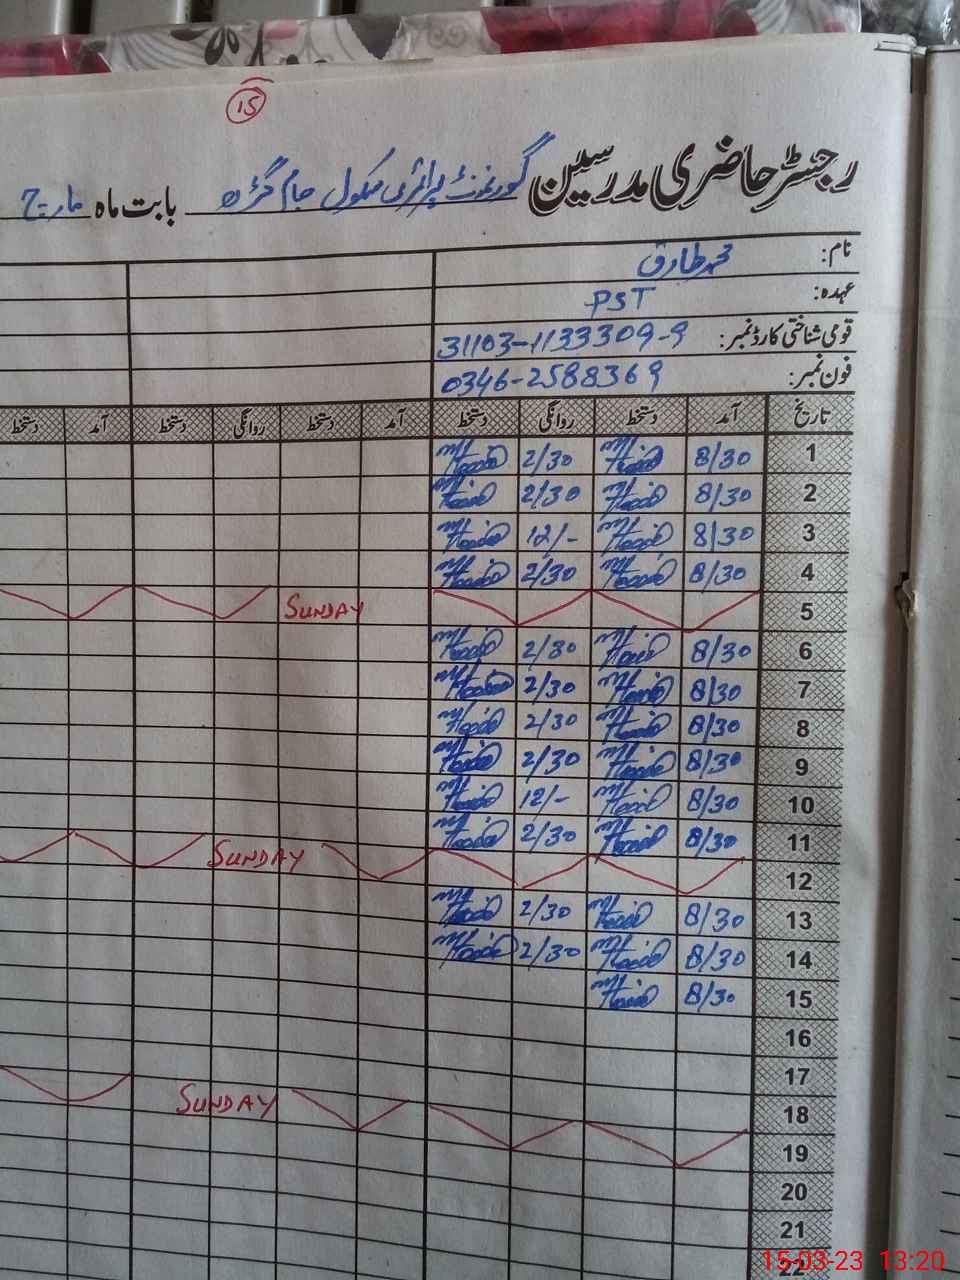 15
رجسٹر حاضری مدرسین گورنمنٹ پرائمری سکول جام گڑھ بابت ماہ مارچ
نام: محمد طارق
عہدہ: PST
قومی شناختی کارڈ نمبر: 31103-1133309-9
فون نمبر: 0346-2588369
تاریخ آمد دستخط روانگی دستخط آمد دستخط روانگی دستخط آمد دستخط
1 8/30 2/30
2 8/30 2/30
3 8/30 12/-
4 8/30 2/30
5 SUNDAY
6 8/30 2/30
7 8/30 2/30
8 8/30 2/30
9 8/30 2/30
10 8/30 12/-
11 8/30 2/30
12 SUNDAY
13 8/30 2/30
14 8/30 2/30
15 8/30
16
17
18
19 SUNDAY
20
21
22
15-03-23 13:20